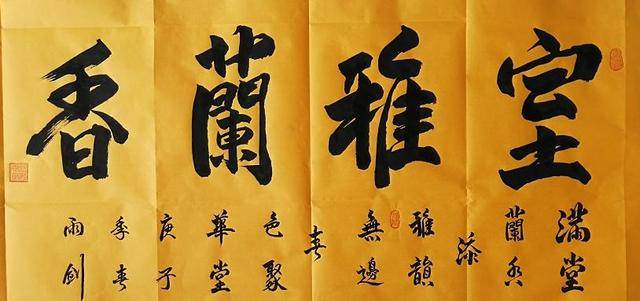 室雅蘭香
滿堂
蘭香
添
雅韻
無邊
春
色聚
華堂
庚子
季春
雨劍